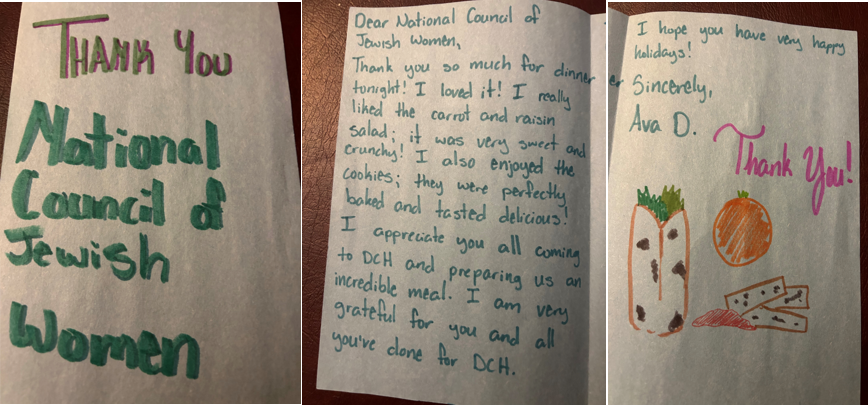 THANK YOU
National
Council of
Jewish
Women
Dear National Council of
Jewish Women,
Thank you so much for dinner
tonight! I loved it! I really
liked the carrot and raisin
salad; it was very sweet and
crunchy! I also enjoyed the
cookies; they were perfectly
baked and tasted delicious!
I appreciate you all coming
to DCH and preparing us an
incredible meal. I am very
grateful for you and all
you've done for DCH.
I hope you have very happy
holidays!
er
Sincerely,
Ava D.
Thank You!